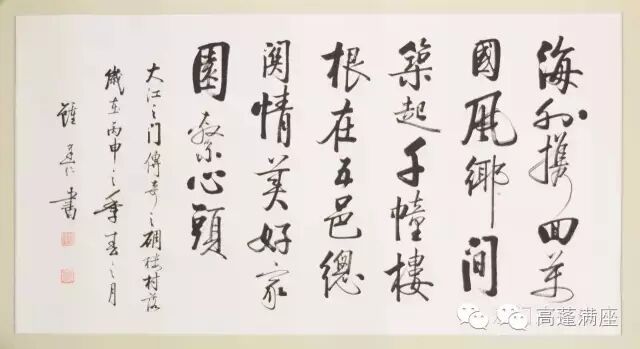 海外携回萬
國風鄉間
築起千幢樓
根在五邑總
関情美好家
園繫心頭
大江之门傳奇之碉楼村落
歲在丙申之季春之月
鍾仁書
高蓬满座